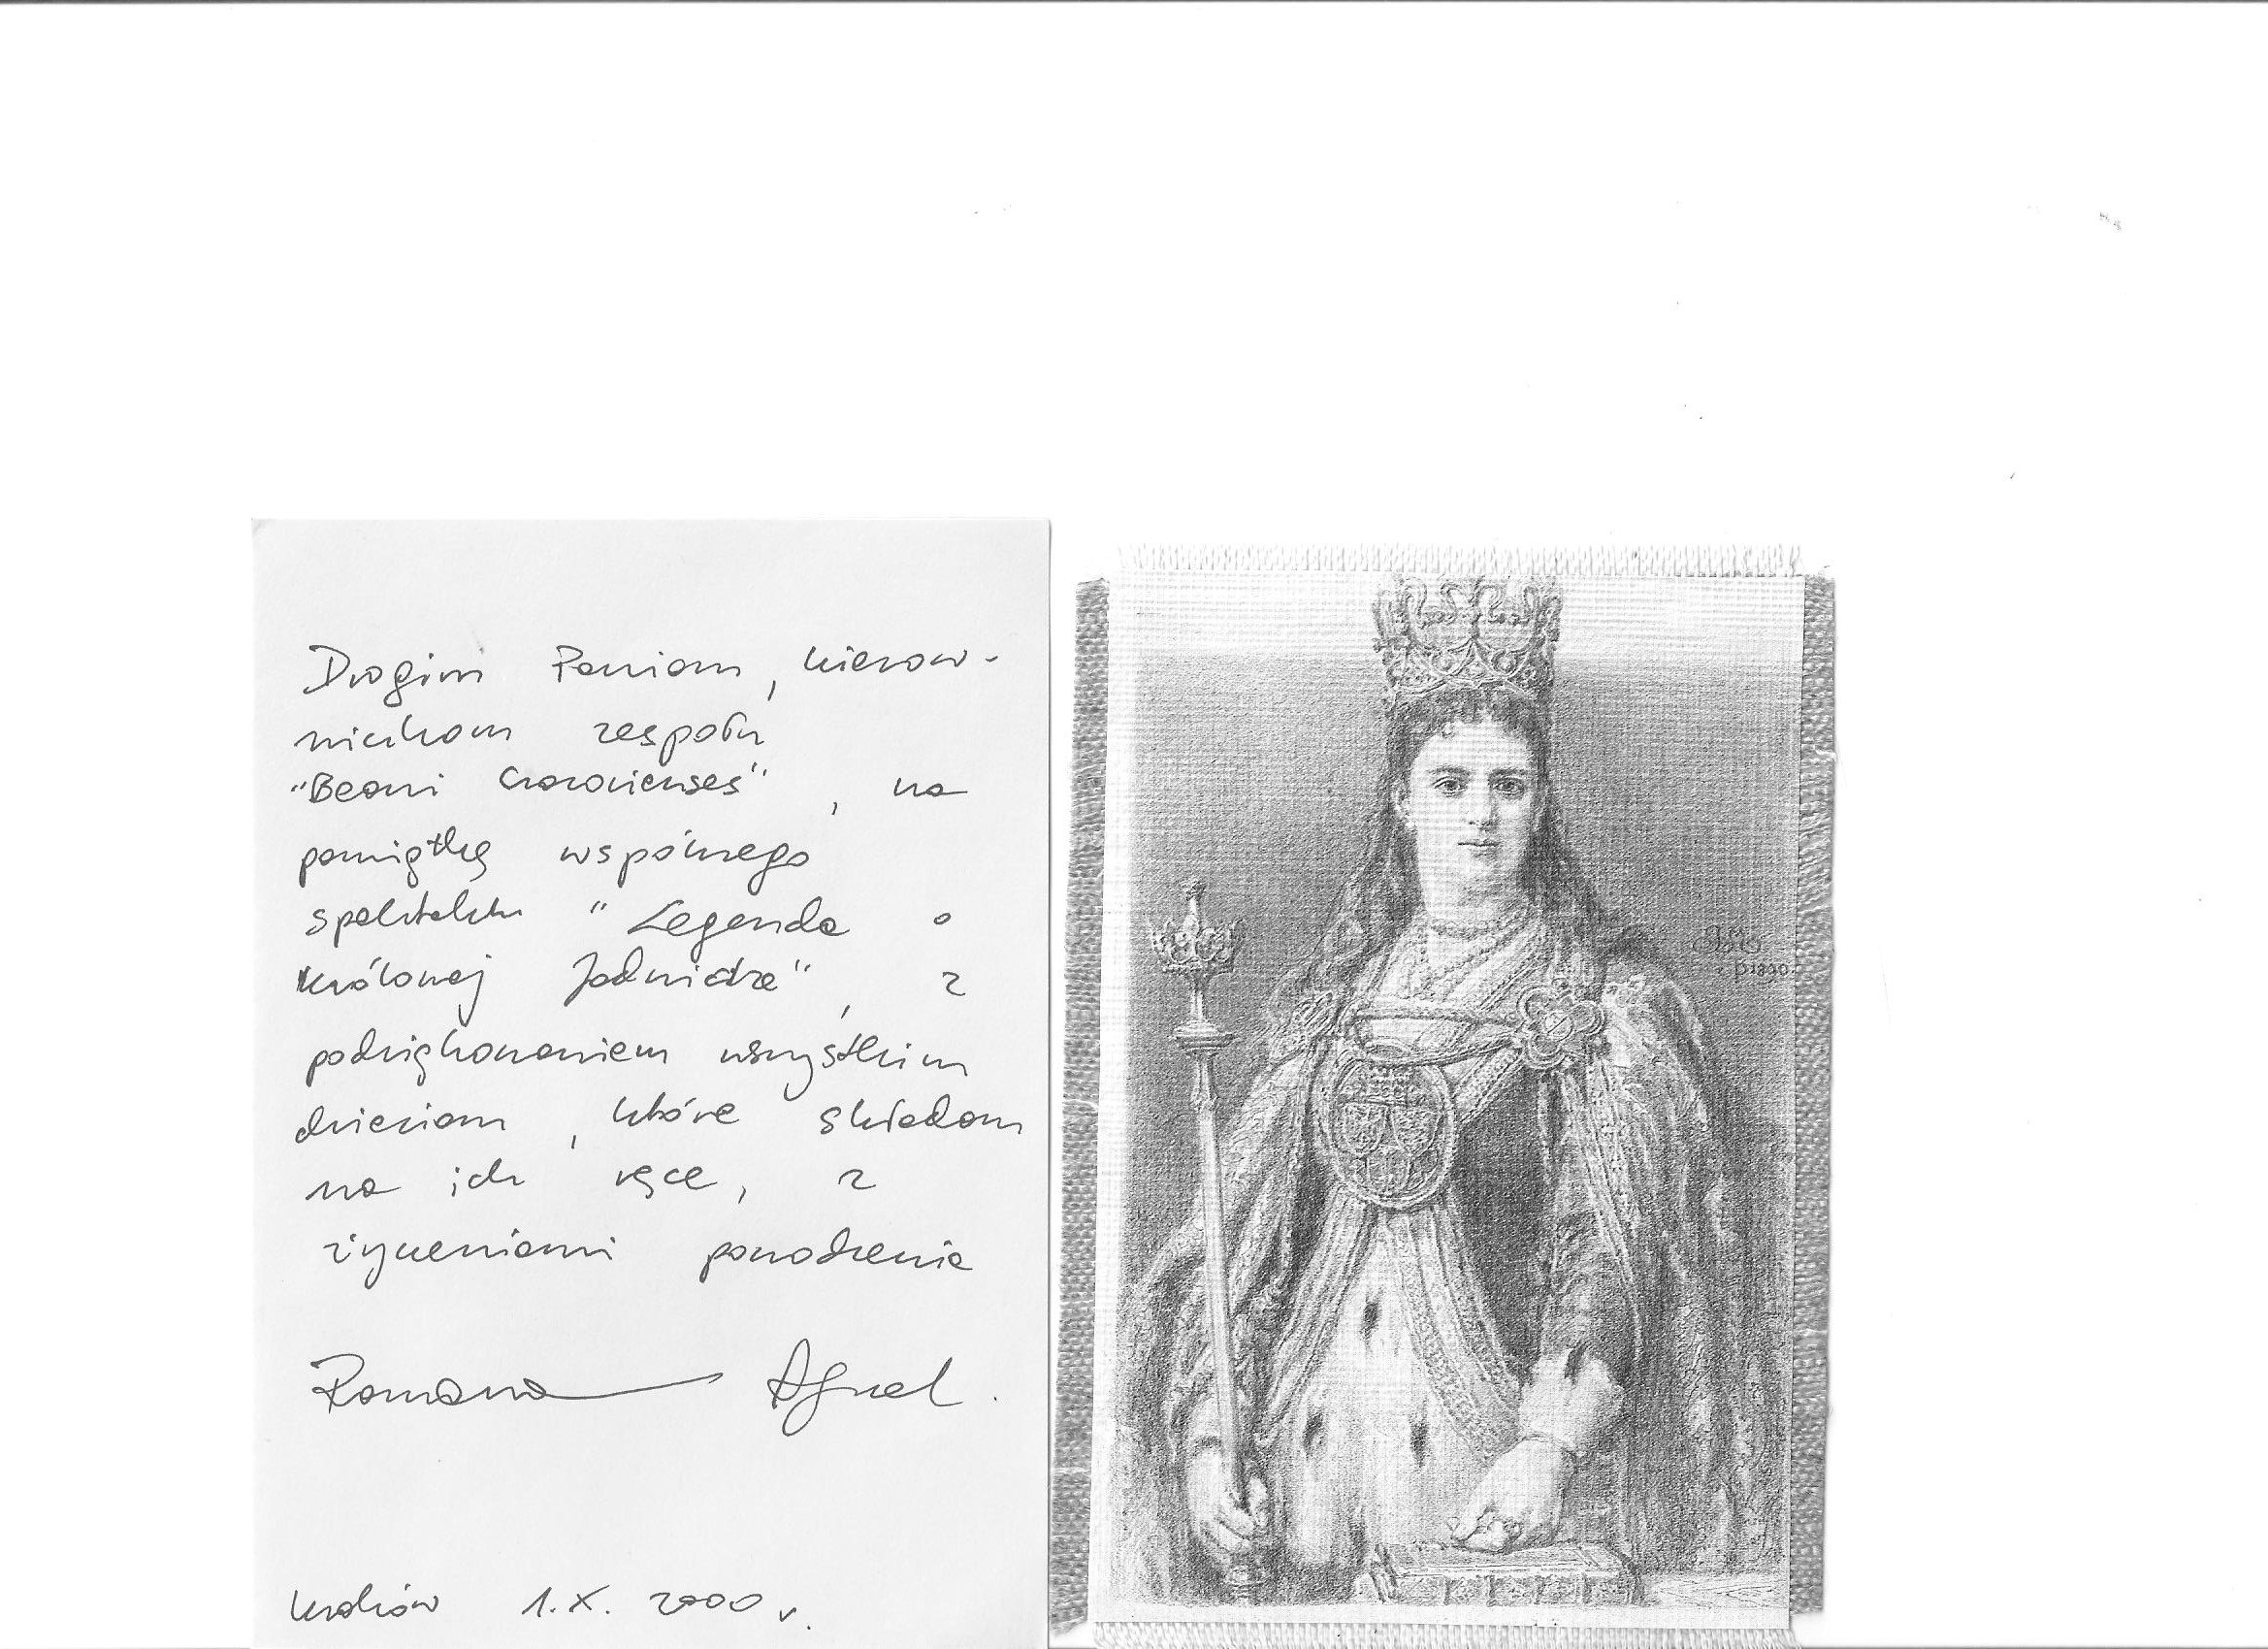 Drogim Paniom, kierow-
niczkom zespołu
"Beani Cracovienses", na
pamiątkę wspólnego
spektaklu "Legenda o
Królowej Jadwidze", z
podziękowaniem wszystkim
dzieciom, które składam
na ich ręce, z
życzeniami powodzenia
Romana Agnel.
Kraków 1.X.2000 r.